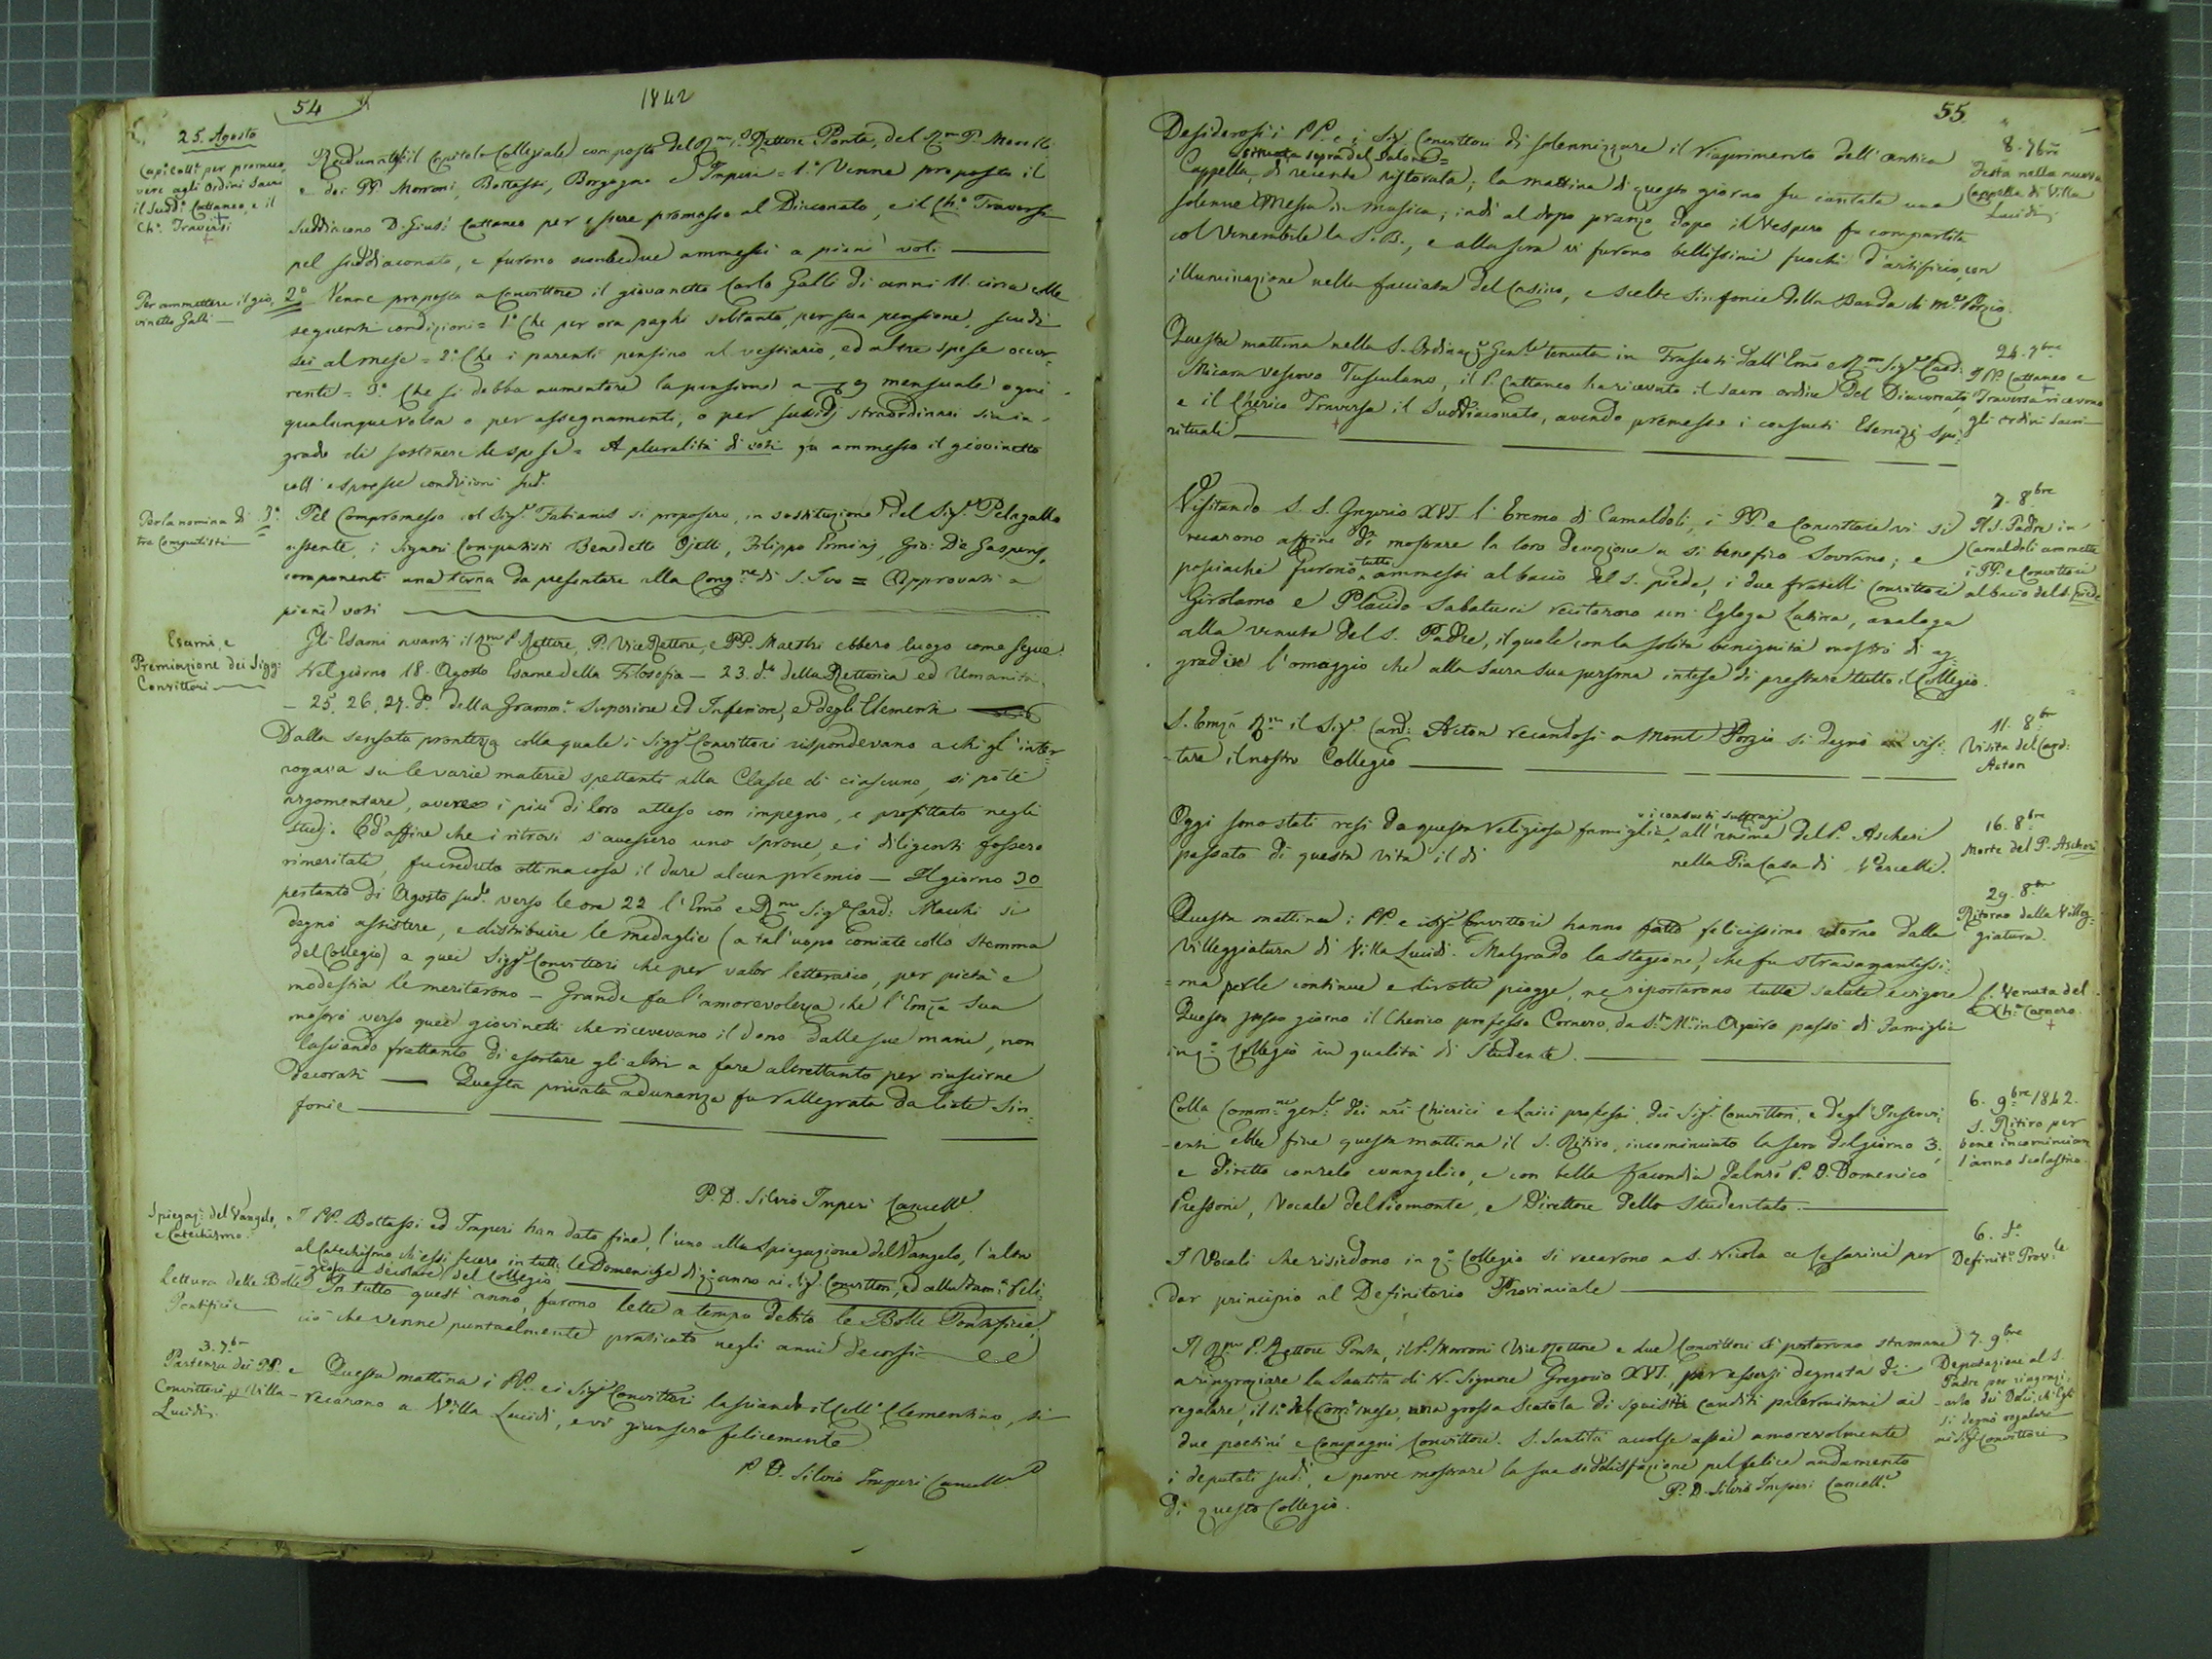 54
1842
25. Agosto
Cap.º Coll.e per promuo-
vere agli Ordini Sacri
il Sudd.º Cattaneo, e il
Ch.º Traversi
Radunatosi il Capitolo Collegiale composto del Rmo P. Rettore Ponta, del Rmo P. Morelli
e dei PP. Morroni, Bottassi, Borgogno e Imperi = 1.º Venne proposto il
Suddiacono D. Gius.e Cattaneo per essere promosso al Diaconato, e il Ch.º Traversa
pel suddiaconato, e furono ambedue ammessi a pieni voti
Per ammettere il gio-
vinetto Galli
2.º Venne proposto a Convittore il giovanetto Carlo Galli di anni 11. circa colle
seguenti condizioni = 1.º Che per ora paghi soltanto, per sua pensione, scudi
sei al mese = 2.º Che i parenti pensino al vestiario, ed altre spese occor-
renti = 3.º Che si debba aumentare la pensione a 9 mensuali ogni
qualunque volta o per assegnamenti, o per sussidj straordinari sia in
grado di sostenere le spese = A pluralità di voti fu ammesso il giovinetto
coll' espresse condizioni sud.e
Per la nomina di
tre Computisti
3.º Pel Compromesso col Sig.r Fabianis si proposero, in sostituzione del Sig.r Pelagallo
assente, i Signori Computisti Benedetto Ojetti, Filippo Ermini, Gio: De Gasperis,
componenti una terna da presentare alla Cong.ne di S. Ivo = Approvati a
pieni voti
Esami, e
Premiazione dei Sigg.
Convittori
Gli Esami avanti il Rmo P. Rettore, P. Vice Rettore, e PP. Maestri ebbero luogo come segue.
Nel giorno 18. Agosto Esame della Filosofia - 23. d.º della Rettorica ed Umanità
- 25. 26. 27. d.º della Gramm.a Superiore ed Inferiore, e degli Elementi
Dalla sensata prontezza colla quale i Sigg.i Convittori rispondevano a chi gl' inter-
rogava su le varie materie spettanti alla Classe di ciascuno, si potè
argomentare, avere i più di loro atteso con impegno, e profittato negli
studj. Ed affine che i ritrosi s'avessero uno sprone, e i diligenti fossero
rimeritati, fu creduto ottima cosa il dare alcun premio - Il giorno 30
pertanto di Agosto sud.º verso le ore 22 l'Emo e Rmo Sig.r Card: Macchi si
degnò assistere, e distribuire le medaglie (a tal' uopo coniate collo stemma
del Collegio) a quei Sigg.i Convittori che per valor letterario, per pietà e
modestia le meritarono - Grande fu l'amorevolezza che l'Emza Sua
mostrò verso quei giovinetti che ricevevano il dono dalle sue mani, non
lasciando frattanto di esortare gli altri a fare altrettanto per riuscirne
decorati - Questa privata adunanza fu rallegrata da liete sin-
fonie
P. D. Silvio Imperi Cancell.e
Spiegaz.e del Vangelo,
e Catechismo.
I PP. Bottassi ed Imperi han dato fine, l'uno alla spiegazione del Vangelo, l'altro
al Catechismo, ch'essi fecero in tutte le Domeniche di q.º anno ai Sig.i Convittori, ed alla Fam.a Reli-
giosa e secolare del Collegio
Lettura delle Bolle
Pontificie
In tutto quest' anno, furono lette a tempo debito le Bolle Pontificie,
ciò che venne puntualmente praticato negli anni decorsi
3. 7.bre
Partenza dei PP. e
Convittori p. Villa
Lucidi.
Questa mattina i PP. e i Sig.i Convittori lasciando il Coll.º Clementino, si
recarono a Villa Lucidi, e vi giunsero felicemente
P. D. Silvio Imperi Cancell.e
55.
8. 7bre
Festa nella nuova
Cappella di Villa
Lucidi.
Desiderosi i PP. e i Sig.i Convittori di solennizzare il riaprimento dell' antica
situata sopra del Salone =
Cappella, di recente ristorata; la mattina di questo giorno fu cantata una
solenne Messa in musica; indi al dopo pranzo dopo il Vespero fu compartita
col Venerabile la S. B., e alla sera vi furono bellissimi fuochi d'artificio, con
illuminazione nella facciata del Casino, e scelte sinfonie della Banda di M.e Porzio.
24. 7bre
I PP. Cattaneo e
Traversa ricevono
gli ordini sacri
Questa mattina nella S. Ordinaz.e Gen.le tenuta in Frascati dall' Emo e Rmo Sig.r Card:
Micara vescovo Tusculano, il P. Cattaneo ha ricevuto il sacro ordine del Diaconato,
e il Cherico Traversa il Suddiaconato, avendo premesso i consueti Esercizj spi-
rituali
7. 8bre
Il S. Padre in
Camaldoli ammette
i PP. e Convittori
al bacio del S. piede
Visitando S. S. Gregorio XVI. l' Eremo di Camaldoli, i PP. e Convittori vi si
recarono affine di mostrare la loro devozione a sì benefico Sovrano; e
posciachè furono tutti ammessi al bacio del S. piede, i due fratelli Convittori
Girolamo e Placido Sabatucci recitarono un' Egloga Latina, analoga
alla venuta del S. Padre, il quale con la solita benignità mostrò di ag-
gradire l'omaggio che alla sacra sua persona intese di prestare tutto il Collegio.
11. 8bre
Visita del Card:
Acton
S. Emza Rma il Sig.r Card: Acton recandosi a Monte Porzio si degnò visi-
tare il nostro Collegio
16. 8bre
Morte del P. Ascheri
i consueti suffragi
Oggi sono stati resi da questa religiosa famiglia, all' anima del P. Ascheri
passato di questa vita il dì nella Pia Casa di Vercelli.
29. 8bre
Ritorno dalla Villeg-
giatura.
Questa mattina i PP. e i Sig.i Convittori hanno fatto felicissimo ritorno dalla
Villeggiatura di Villa Lucidi. Malgrado la stagione, che fu stravagantissi-
ma per le continue e dirotte piogge, ne riportarono tutti salute e vigore
Venuta del
Ch.º Cornero.
Questo stesso giorno il Cherico professo Cornero, da S.ta M.a in Aquiro passò di Famiglia
in q.º Collegio in qualità di Studente.
6. 9bre 1842.
S. Ritiro per
bene incominciare
l'anno scolastico.
Colla Comm.ne gen.le dei nri Chierici e Laici professi, dei Sig.i Convittori, e degl' Inservi-
enti ebbe fine questa mattina il S. Ritiro, incominciato la sera del giorno 3.
e diretto con zelo evangelico, e con bella facondia dal nro P. D. Domenico
Pressoni, Vocale del Piemonte, e Direttore dello Studentato.
6. d.º
Definit.º Prov.le
I Vocali che risiedono in q.º Collegio si recarono a S. Nicola a Cesarini per
dar principio al Definitorio Provinciale
7. 9bre
Deputazione al S.
Padre per ringrazi-
arlo dei Dolci, ch'Egli
si degnò regalare
ai Sig.i Convittori
Il Rmo P. Rettore Ponta, il P. Morroni Vice Rettore e due Convittori si portarono stamane
a ringraziare la Santità di N. Signore Gregorio XVI., per essersi degnata di
regalare, il 1.º del corr.e mese, una grossa scatola di squisiti canditi palermitani ai
due poetini e compagni Convittori. S. Santità accolse assai amorevolmente
i deputati sud.i, e parve mostrare la sua soddisfazione pel felice andamento
di questo Collegio.
P. D. Silvio Imperi Cancell.e